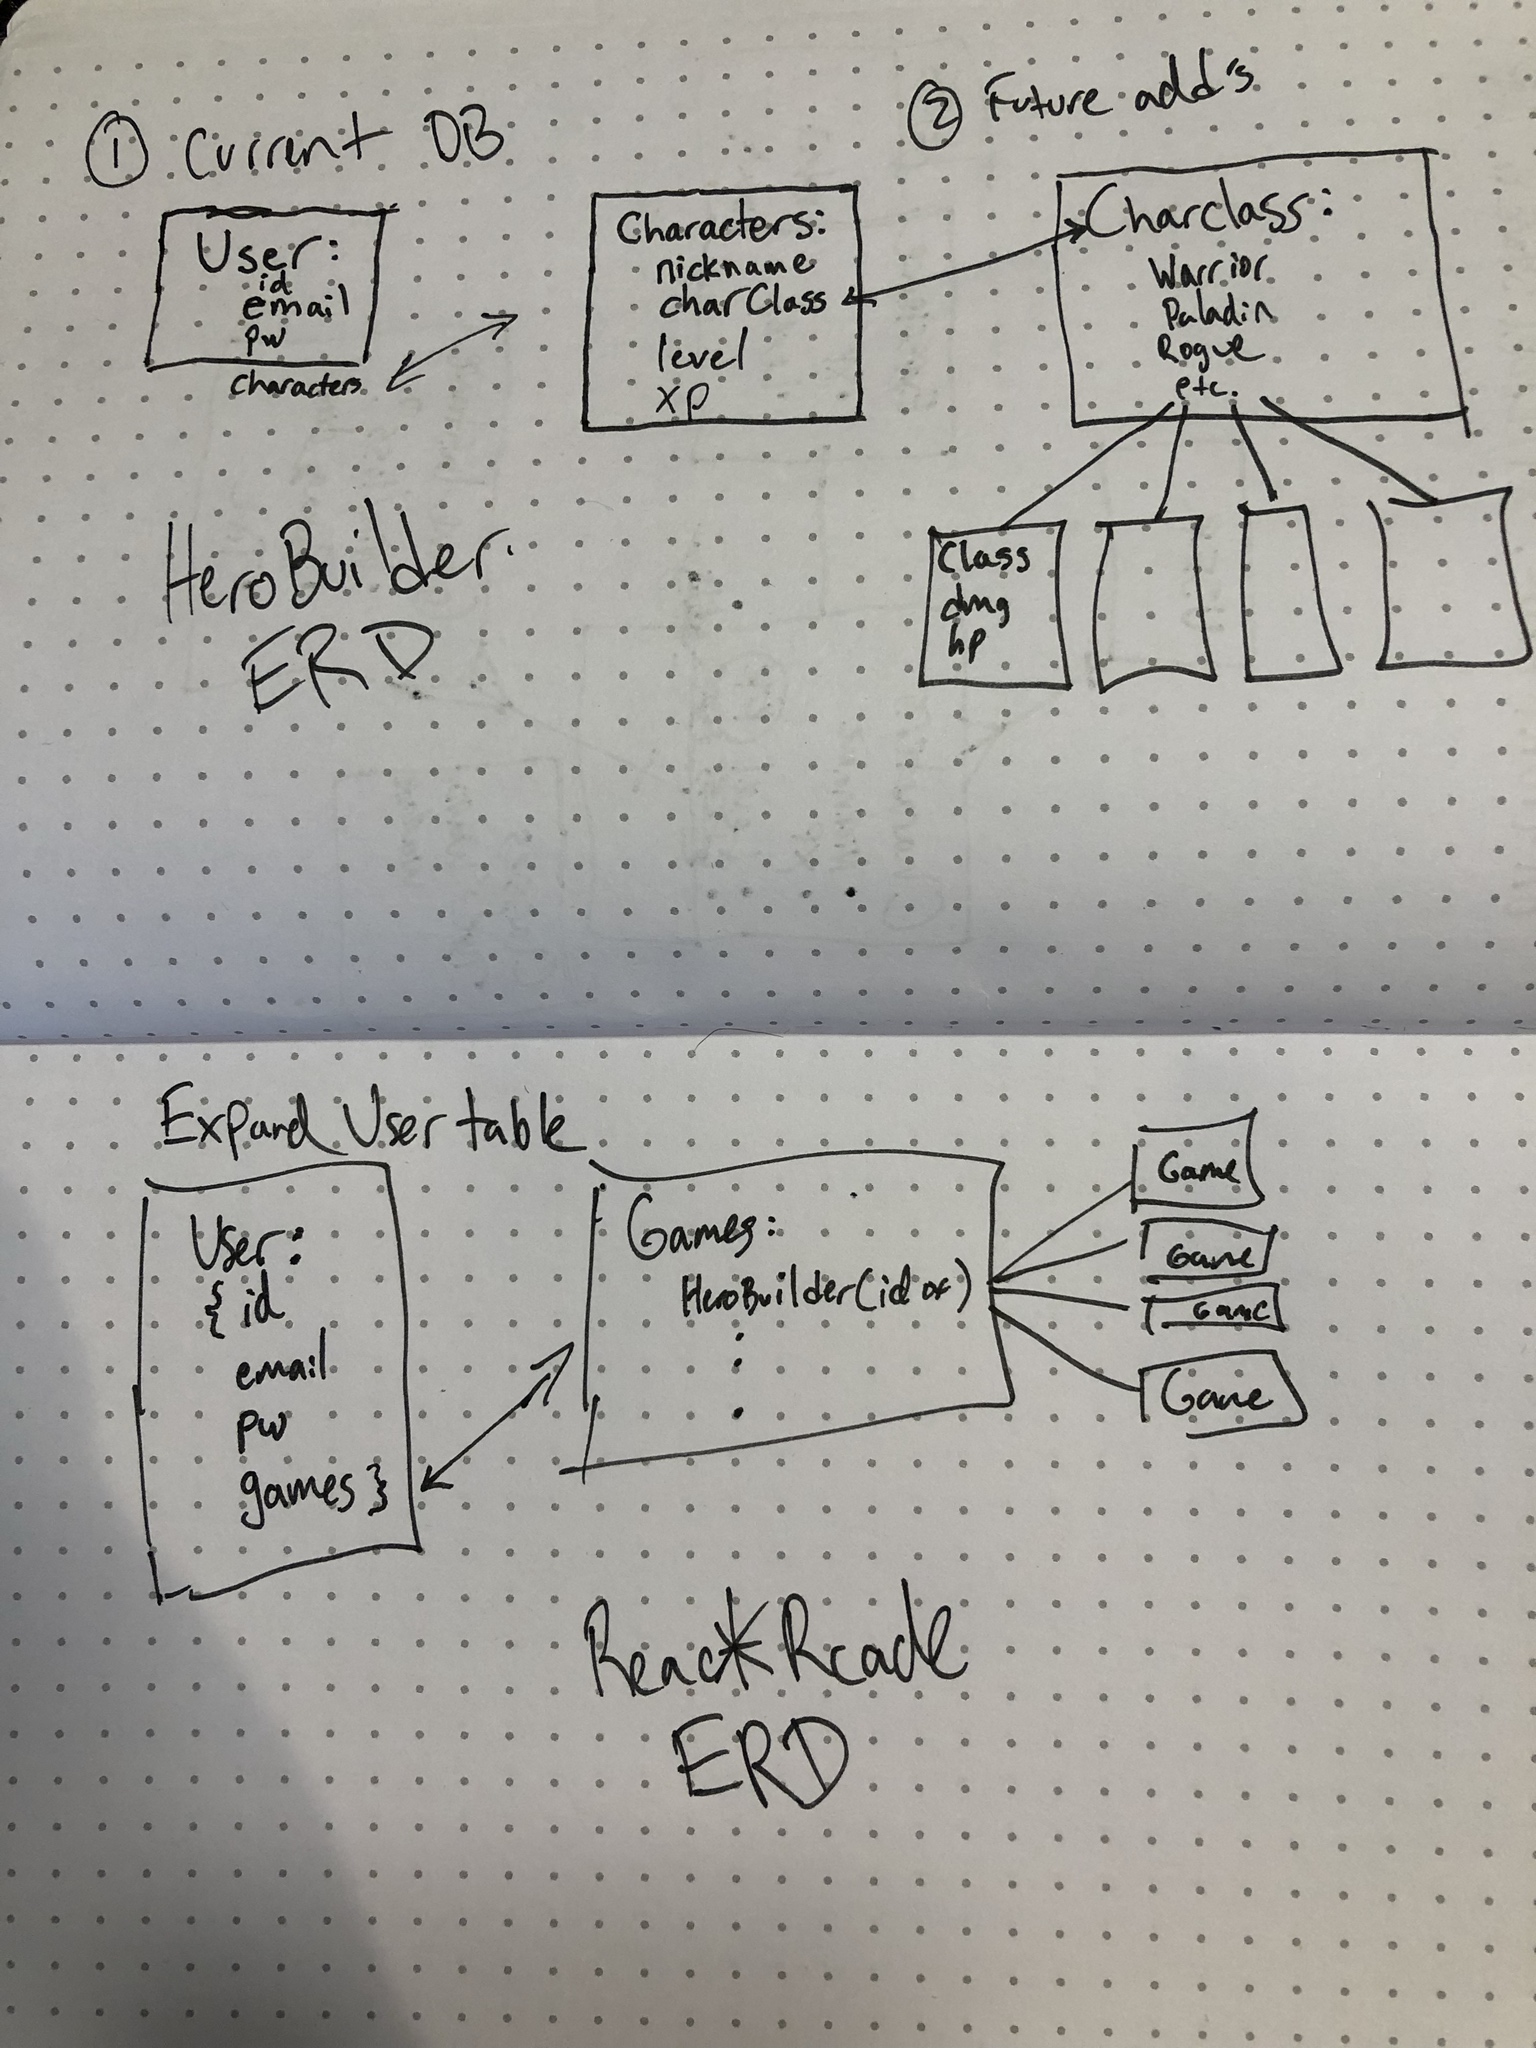 ① Current DB
② Future add's
User:
id
email
pw
characters
Characters:
nickname
charClass
level
xp
Charclass:
Warrior
Paladin
Rogue
etc.
Class
dmg
hp
HeroBuilder
ERD
Expand User table
User:
{ id
email
pw
games }
Games:
HeroBuilder (id of)
Game
Game
Game
Game
ReactRcade
ERD